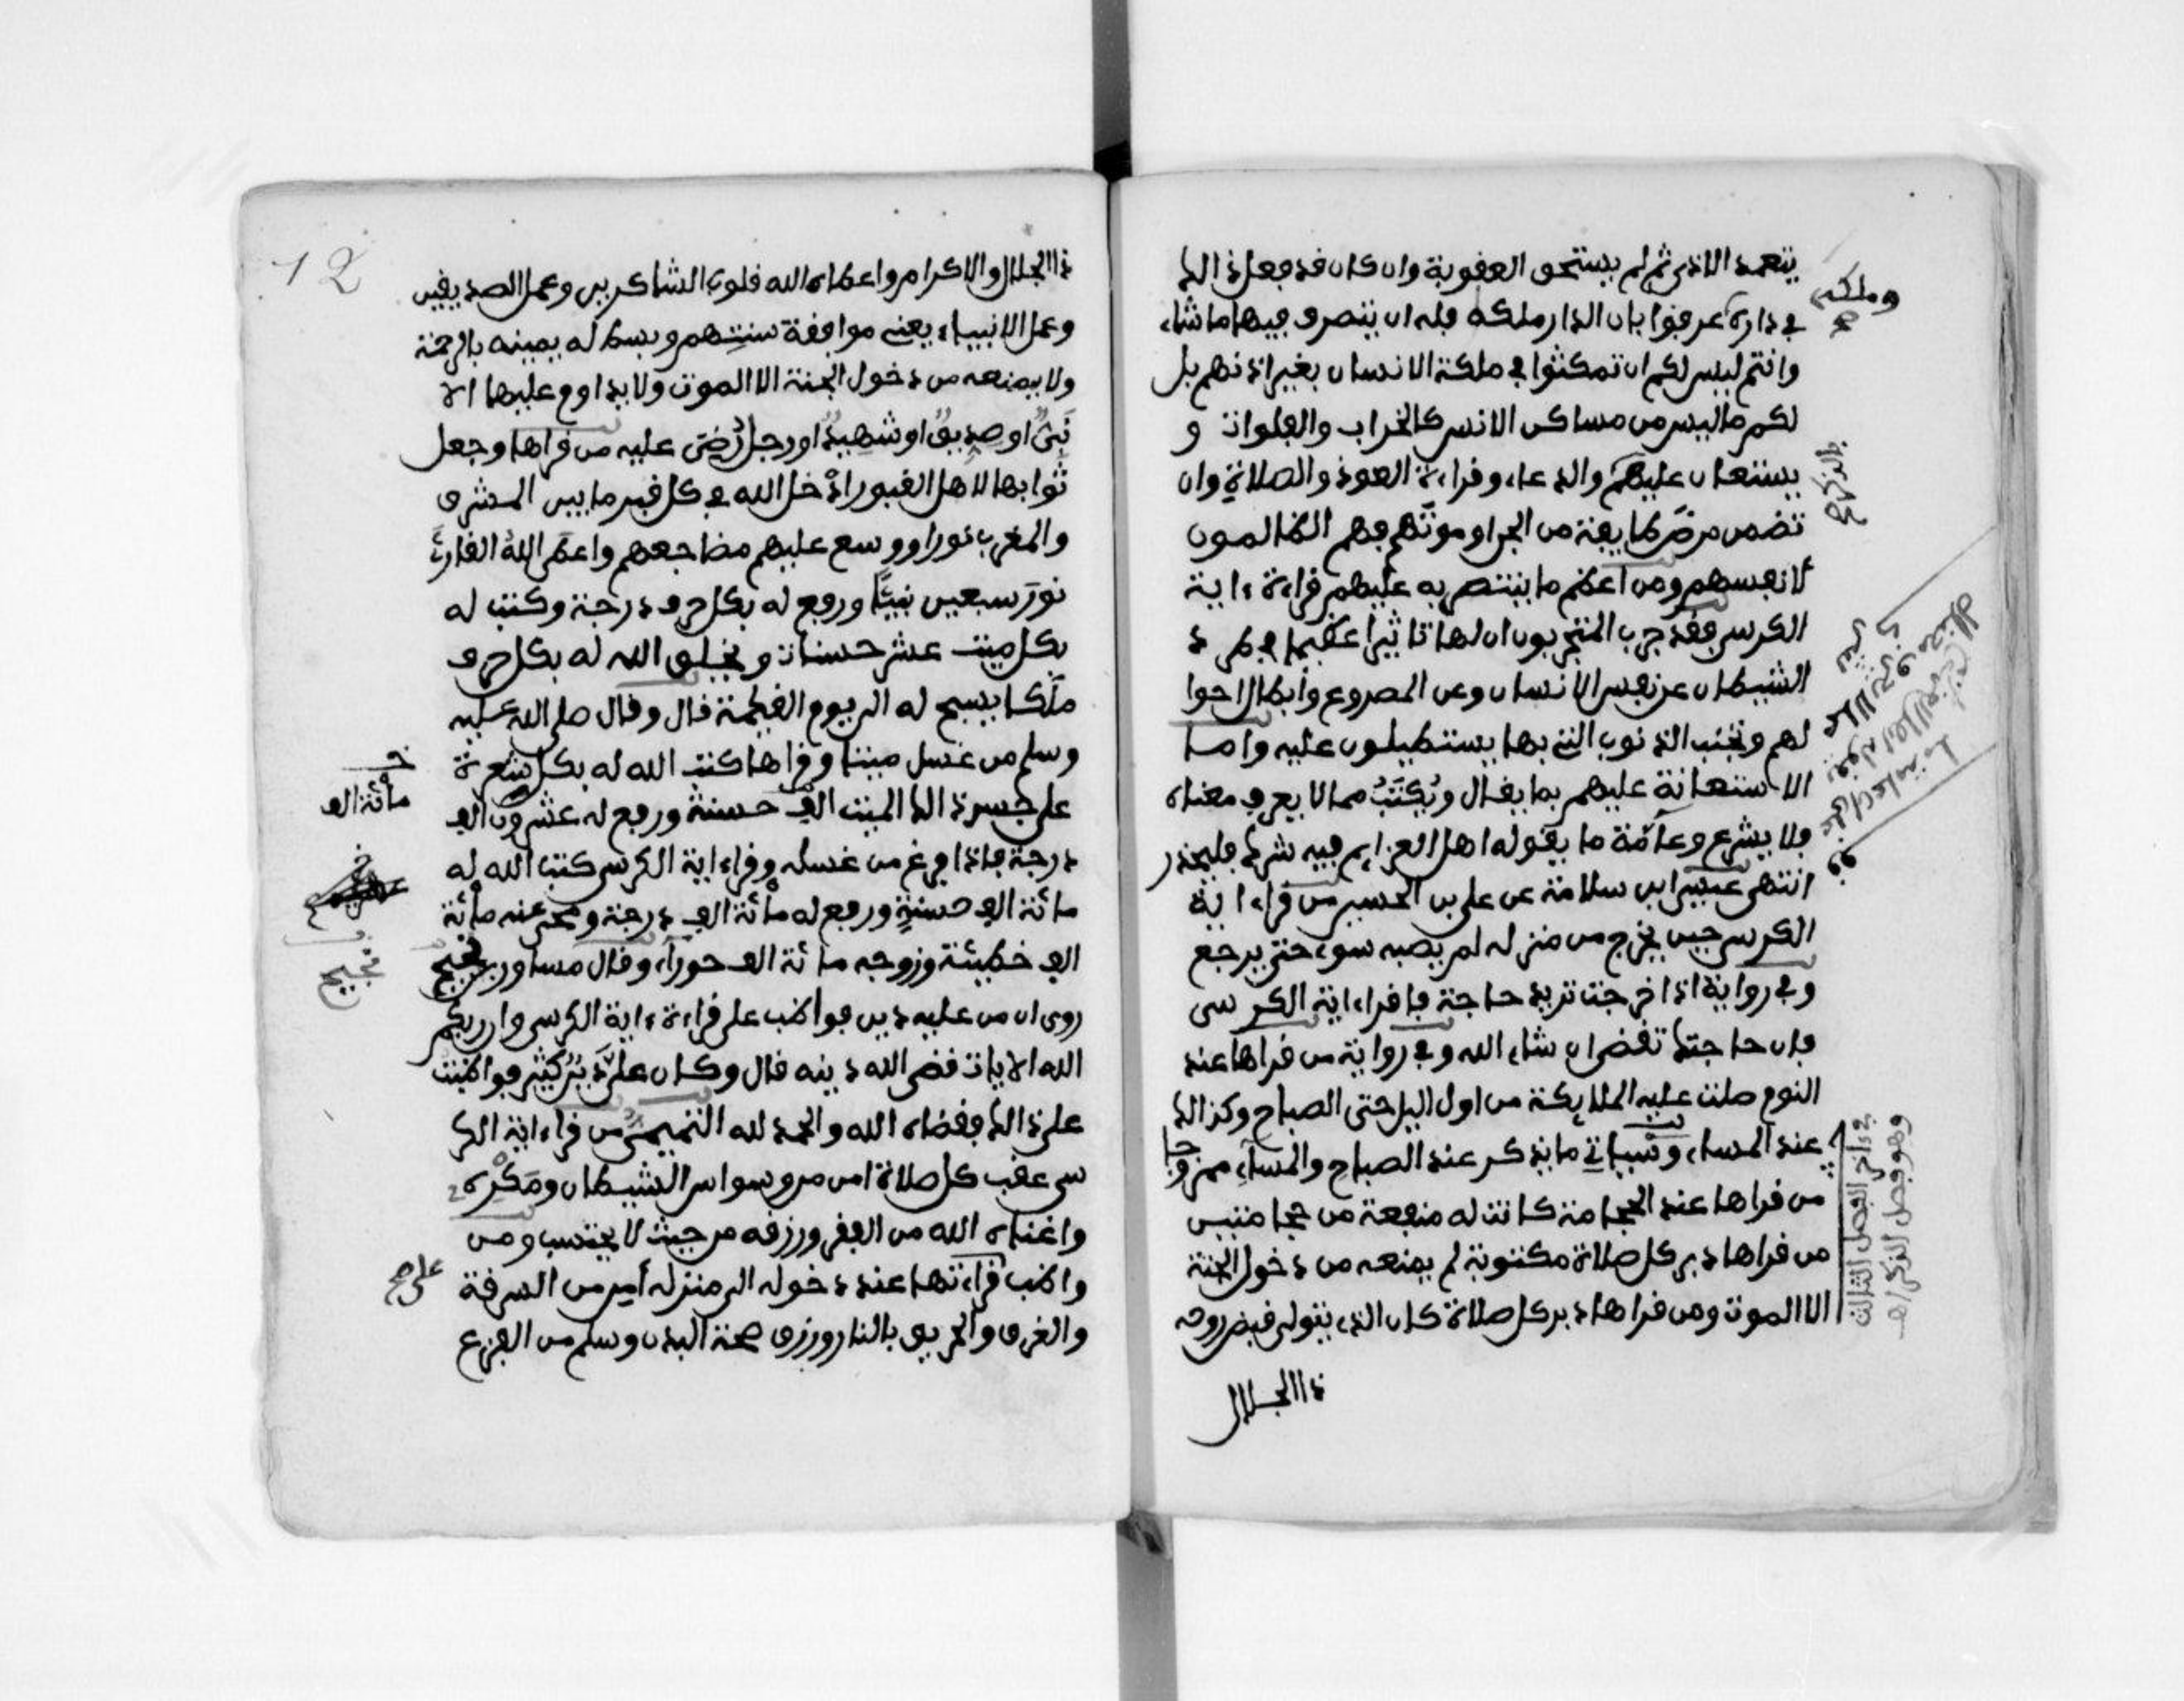 يتعمد الاذى ثم لم يستحق العقوبة وان كان قد فعل ذالك
في داره عرفوا بان الدار ملكه فله ان يتصرف فيها ما شاء
وانتم ليس لكم ان تمكثوا في ملكة الانسان بغير اذنهم بل
لكم ما ليس من مساكن الانس كالخراب والفلوات و
يستعان عليهم والدعاء وقراءة العوذ والصلاة وان
تضمن مرض طايفة من الجن او موتهم فهم الظالمون
لانفسهم ومن اعظم ما ينتصر به عليهم قراءة ءاية
الكرسي فقد جرب المجربون ان لها تاثيرا عظيما في طرد
الشيطان عن نفس الانسان وعن المصروع وابطال احوا
لهم وتجنب الذنوب التي بها يستطيلون عليه واما
الاستعانة عليهم بما يقال ويكتب مما لا يعرف معناه
فلا يشرع وعامة ما يقوله اهل العزايم فيه شرك فليحذر
انتهى ابن سلامة عن علي بن الحسين من قراء اية
الكرسي حين يخرج من منزله لم يصبه سوء حتى يرجع
وفي رواية اذا خرجت تريد حاجة فاقراء اية الكرسى
فان حاجتك تقضى ان شاء الله وفي رواية من قراها عند
النوم صلت عليه الملايكة من اول اليل حتى الصباح وكذالك
عند المساء وسياتي ما يذكر عند الصباح والمساء ممزوجا
من قراها عند الحجامة كانت له منفعة من حجامتين
من قراها دبر كل صلاة مكتوبة لم يمنعه من دخول الجنة
الا الموت ومن قراها دبر كل صلاة كان الذي يتولى قبض روحه
ذا الجلال
وملكه
صح
بالذكر صح
في ءاخر الفصل الثالث
وهو فصل الذكر اهـ
12
ذا الجلال والاكرام واعطاه الله قلوب الشاكرين وعمل الصديقين
وعمل الانبياء يعني موافقة سنتهم وبسط له يمينه بالرحمة
ولا يمنعه من دخول الجنة الا الموت ولا يداوم عليها الا
نبي او صديق او شهيد او رجل رضي عليه من قراها وجعل
ثوابها لاهل القبور ادخل الله في كل قبر ما بين المشرق
والمغرب نورا ووسع عليهم مضاجعهم واعطى الله القارئ
نور سبعين نبيا ورفع له بكل حرف درجة وكتب له
بكل ميت عشر حسنات ويخلق الله له بكل حرف
ملكا يسبح له الى يوم القيمة قال وقال صلى الله عليه
وسلم من غسل ميتا وقراها كتب الله له بكل شعرة
على جسد ذالك الميت الف حسنة ورفع له عشرون الف
درجة فاذا فرغ من غسله وقراء اية الكرسي كتب الله له
مائة الف حسنة ورفع له مائة الف درجة ومحى عنه مائة
الف خطيئة وزوجه مائة الف حوراء وقال مساور بن
روى ان من عليه دين فواظب على قراءة ءاية الكرسي وان ربكم
الله الايات قضى الله دينه قال وكان علي دين كثير فواظبت
على ذالك فقضاه الله والحمد لله التميمي من قراء اية الكر
سي عقب كل صلاة امن من وسواس الشيطان ومكره
واغناه الله من الفقر ورزقه من حيث لا يحتسب ومن
واظب قراءتها عند دخوله الى منزله أمن من السرقة
والغرق والحريق بالنار ورزق صحة البدن وسلم من الفزع
مائة الف
على صح